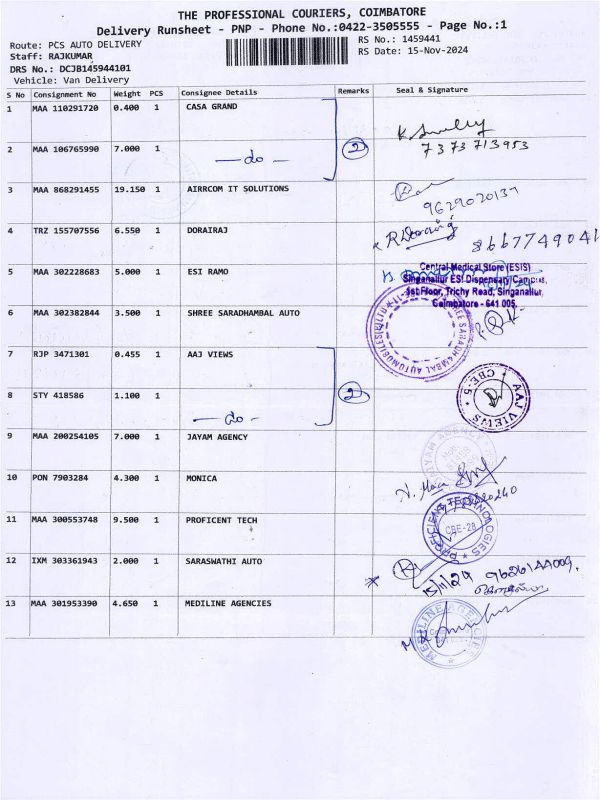 THE PROFESSIONAL COURIERS, COIMBATORE
Delivery Runsheet - PNP - Phone No.:0422-3505555 - Page No.:1
Route: PCS AUTO DELIVERY
RS No.: 1459441
Staff: RAJKUMAR
RS Date: 15-Nov-2024
DRS No.: DCJB145944101
Vehicle: Van Delivery
S No Consignment No Weight PCS Consignee Details Remarks Seal & Signature
1 MAA 110291720 0.400 1 CASA GRAND
2 MAA 106765990 7.000 1 — do — 2
7373713953
3 MAA 868291455 19.150 1 AIRRCOM IT SOLUTIONS
9629020137
4 TRZ 155707556 6.550 1 DORAIRAJ
8667749041
5 MAA 302228683 5.000 1 ESI RAMO
Central Medical Store (ESIS)
Singanallur ESI Dispensary Campus,
1st Floor, Trichy Road, Singanallur,
Coimbatore - 641 005.
6 MAA 302382844 3.500 1 SHREE SARADHAMBAL AUTO
7 RJP 3471301 0.455 1 AAJ VIEWS
AAJ VIEWS
CBE-5
8 STY 418586 1.100 1 — do — 2
9 MAA 200254105 7.000 1 JAYAM AGENCY
JAYAM AGENCY
10 PON 7903284 4.300 1 MONICA
11 MAA 300553748 9.500 1 PROFICENT TECH
PROFICIENT TECHNOLOGIES
CBE-28
12 IXM 303361943 2.000 1 SARASWATHI AUTO
15/11/24 9626144009.
13 MAA 301953390 4.650 1 MEDILINE AGENCIES
MEDILINE AGENCIES